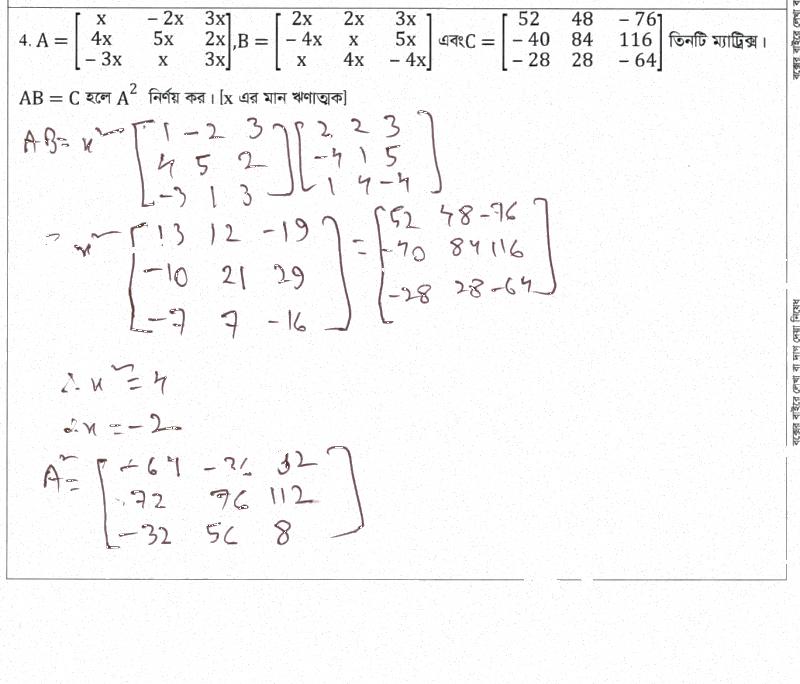 4. A = [x −2x 3x; 4x 5x 2x; −3x x 3x], B = [2x 2x 3x; −4x x 5x; x 4x −4x] এবং C = [52 48 −76; −40 84 116; −28 28 −64] তিনটি ম্যাট্রিক্স।
AB = C হলে A² নির্ণয় কর। [x এর মান ঋণাত্মক]
AB = x² [1 −2 3; 4 5 2; −3 1 3] [2 2 3; −4 1 5; 1 4 −4]
= x² [13 12 −19; −10 21 29; −7 7 −16] = [52 48 −76; −40 84 116; −28 28 −64]
∴ x² = 4
∴ x = −2
A² = [−64 −36 32; 72 76 112; −32 56 8]
বক্সের বাইরে লেখা বা দাগ দেয়া নিষেধ